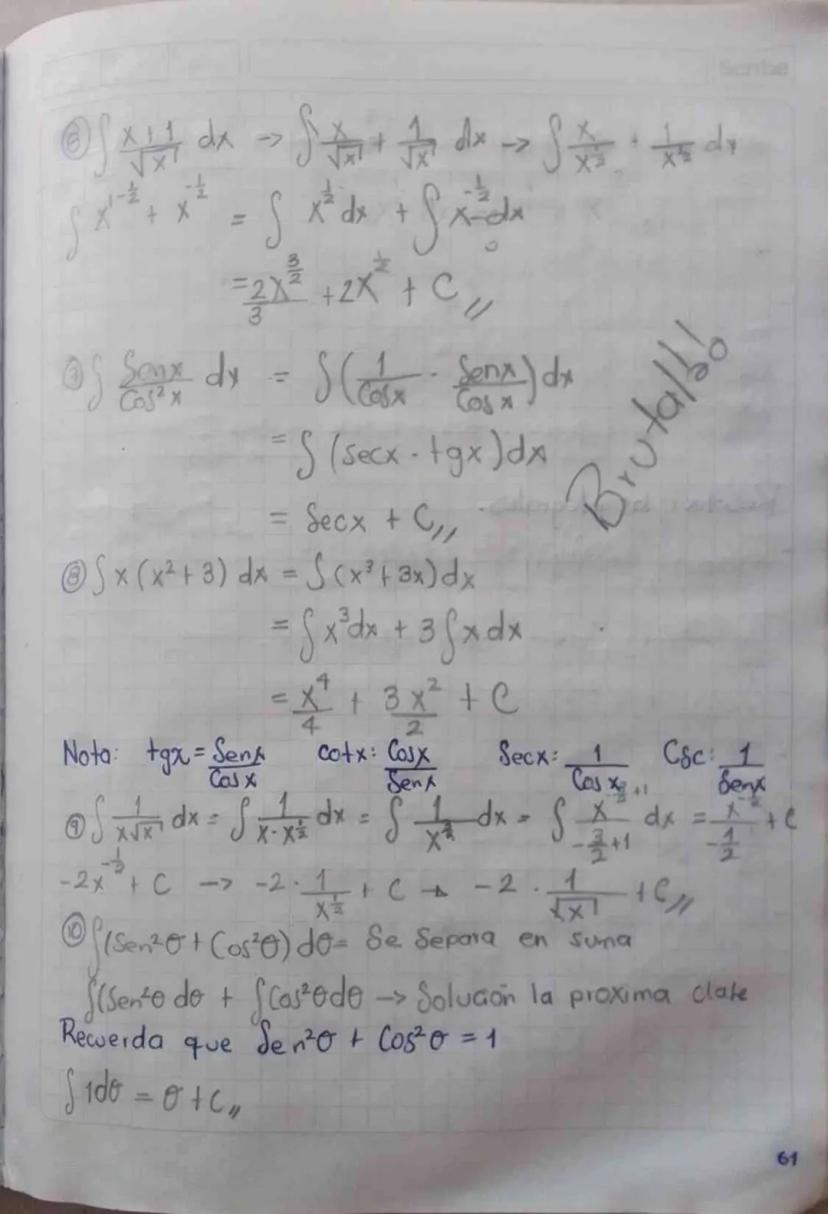 Scribe
⑥ ∫ x+1/√x dx → ∫ x/√x + 1/√x dx → ∫ x/x^½ + 1/x^½ dx
∫ x^(1-½) + x^(-½) = ∫ x^½ dx + ∫ x^(-½) dx
= 2x^(3/2)/3 + 2x^½ + C //
⑦ ∫ Senx/Cos²x dx = ∫ (1/Cosx · Senx/Cosx) dx
= ∫ (secx · tgx) dx
= Secx + C //
Brutal!!
⑧ ∫ x (x² + 3) dx = ∫ (x³ + 3x) dx
= ∫ x³ dx + 3 ∫ x dx
= x⁴/4 + 3x²/2 + C
Nota: tgx = Senx/Cosx cotx: Cosx/Senx Secx: 1/Cosx Csc: 1/Senx
⑨ ∫ 1/x√x dx = ∫ 1/x·x^½ dx = ∫ 1/x^(3/2) dx = ∫ x^(-3/2+1)/(-3/2+1) dx = x^(-½)/(-1/2) + C
-2x^(-½) + C → -2 · 1/x^½ + C → -2 · 1/√x + C //
⑩ ∫ (Sen²θ + Cos²θ) dθ = Se Separa en suma
∫ (Sen²θ dθ + ∫ Cos²θ dθ → Solución la proxima clase
Recuerda que Sen²θ + Cos²θ = 1
∫ 1dθ = θ + C //
61